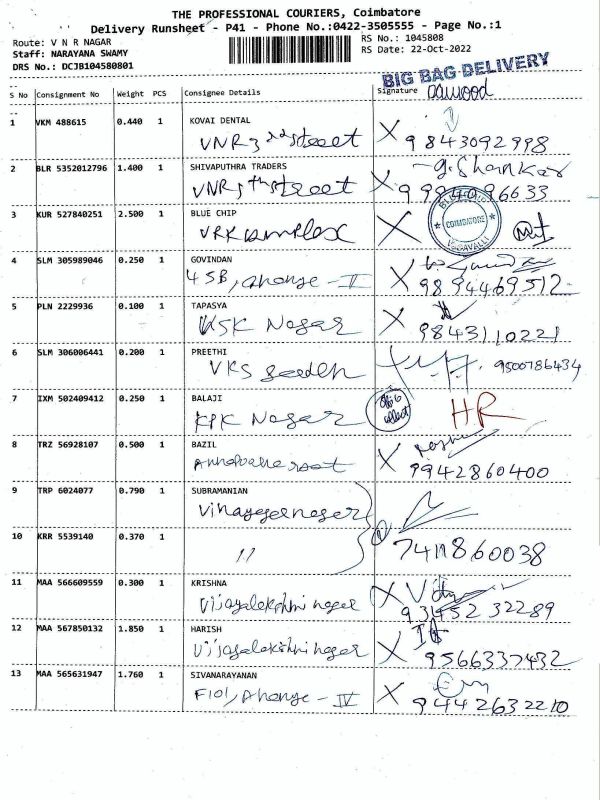 THE PROFESSIONAL COURIERS, Coimbatore
Delivery Runsheet - P41 - Phone No.:0422-3505555 - Page No.:1
Route: V N R NAGAR
RS No.: 1045808
Staff: NARAYANA SWAMY
RS Date: 22-Oct-2022
DRS No.: DCJB104580801
BIG BAG DELIVERY
S No Consignment No Weight PCS Consignee Details Signature
1 VKM 488615 0.440 1 KOVAI DENTAL
VNR 3rd street X 9843092998
2 BLR 5352012796 1.400 1 SHIVAPUTHRA TRADERS G. Shankar
VNR 5th street X
3 KUR 527840251 2.500 1 BLUE CHIP
VRK complex X COIMBATORE
4 SLM 305989046 0.250 1 GOVINDAN
45B, Phase - II X 9894469512
5 PLN 2229936 0.100 1 TAPASYA
KSK Nagar X 9843110221
6 SLM 306006441 0.200 1 PREETHI
VKS 9500786434
7 IXM 502409412 0.250 1 BALAJI
KPK Nagar HR
8 TRZ 56928107 0.500 1 BAZIL
X 9942860400
9 TRP 6024077 0.790 1 SUBRAMANIAN
Vinayagar nagar
10 KRR 5539140 0.370 1
11 7411860038
11 MAA 566609559 0.300 1 KRISHNA
Vijayalakshmi nagar X 9345232289
12 MAA 567850132 1.850 1 HARISH
Vijayalakshmi nagar X 9566337432
13 MAA 565631947 1.760 1 SIVANARAYANAN
F101, Phase - IV X 94442632210